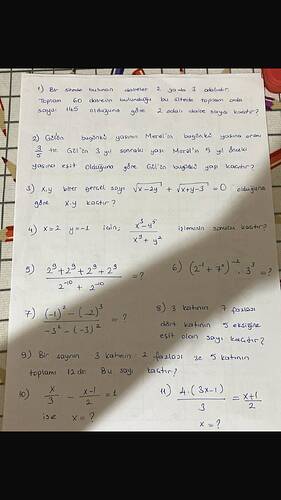 1) Bir sitede bulunan daireler 2 ya da 3 odalıdır.
Toplam 60 dairenin bulunduğu bu sitede toplam oda
sayısı 145 olduğuna göre 2 odalı daire sayısı kaçtır?
2) Gül'ün bugünkü yaşının Meral'in bugünkü yaşına oranı
3/5 tir. Gül'ün 3 yıl sonraki yaşı Meral'in 5 yıl önceki
yaşına eşit olduğuna göre Gül'ün bugünkü yaşı kaçtır?
3) x,y birer gerçel sayı √(x-2y) + √(x+y-3) = 0 olduğuna
göre x.y kaçtır?
4) x=2 y=-1 için; (x³-y⁵)/(x³+y²) işleminin sonucu kaçtır?
5) (2⁹+2⁹+2⁹+2⁹)/(2⁻¹⁰+2⁻¹⁰) = ?
6) (2⁻¹+7⁰)⁻² . 3³ = ?
7) ((-1)²-(-2)³)/(-3²-(-3)²) = ?
8) 3 katının 7 fazlası
dört katının 5 eksiğine
eşit olan sayı kaçtır?
9) Bir sayının 3 katının 2 fazlası ile 5 katının
toplamı 12 dir. Bu sayı kaçtır?
10) x/3 - (x-1)/2 = 1
ise x=?
11) 4.(3x-1)/3 = (x+1)/2
x=?